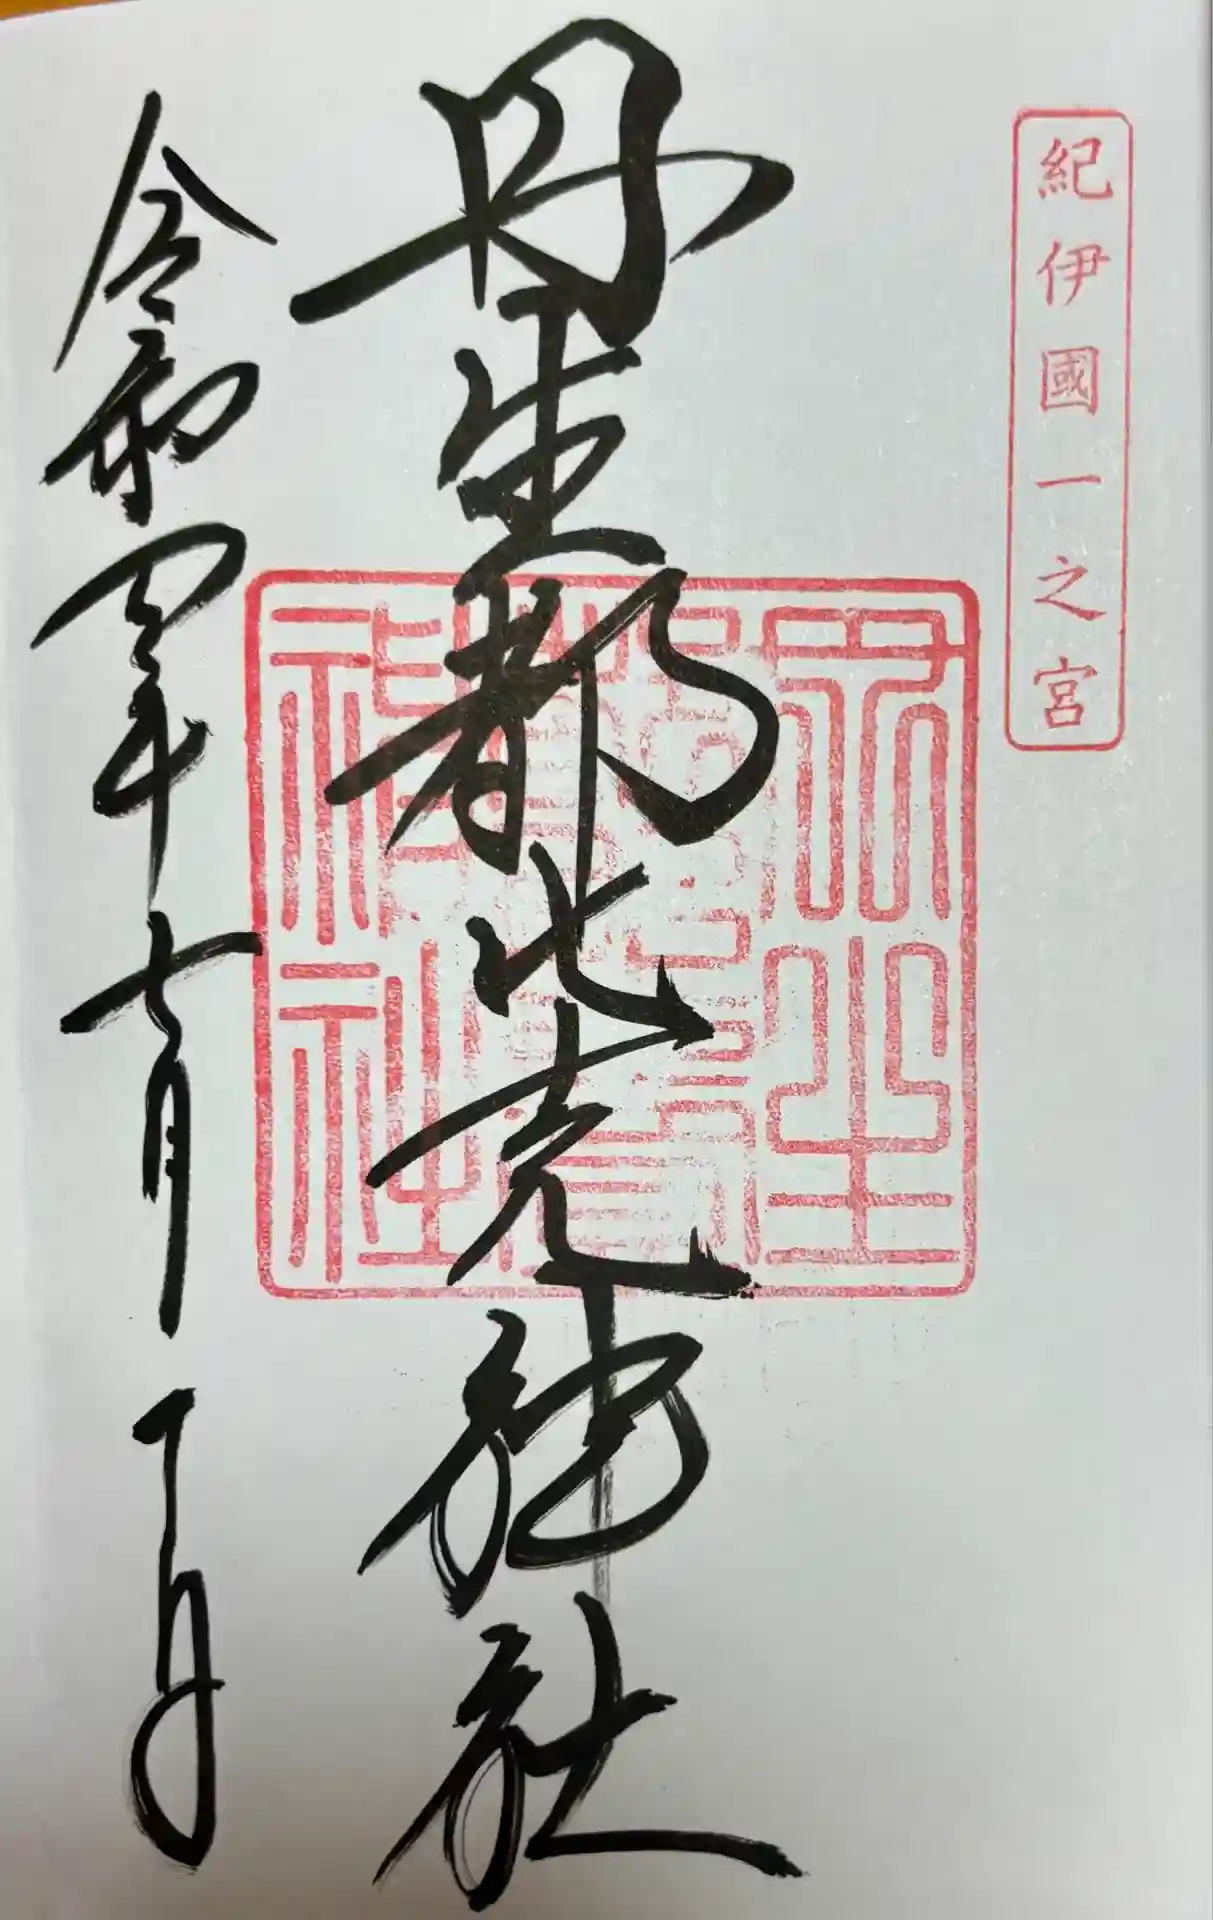 紀伊國一之宮
丹生都比売神社
令和四年七月一日
丹生
神社